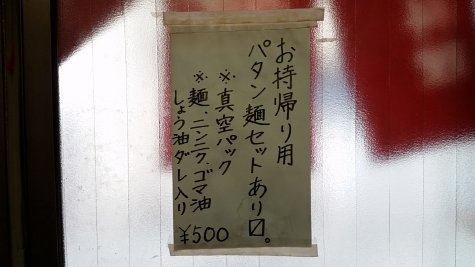 お持帰り用
パタン麺セットあり〼。
※真空パック
※麺、ニンニク、ゴマ油
しょう油ダレ入り
¥500